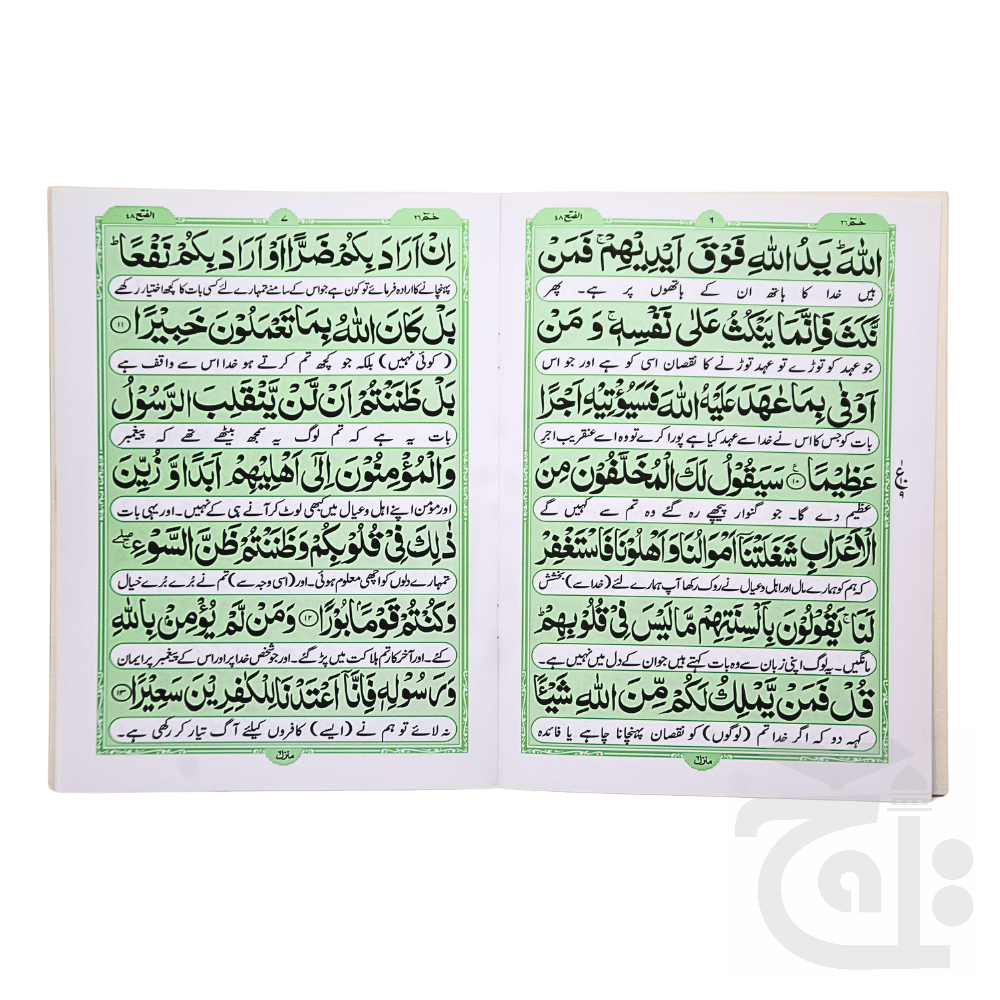 حٰمٓ ٢٦
٦
الفتح ٤٨
اللّٰهَ ؕ يَدُ اللّٰهِ فَوْقَ اَيْدِيْهِمْ ۚ فَمَنْ
ہیں خدا کا ہاتھ ان کے ہاتھوں پر ہے۔ پھر
نَّكَثَ فَاِنَّمَا يَنْكُثُ عَلٰى نَفْسِهٖ ۚ وَ مَنْ
جو عہد کو توڑے تو عہد توڑنے کا نقصان اسی کو ہے اور جو اس
اَوْفٰى بِمَا عٰهَدَ عَلَيْهُ اللّٰهَ فَسَيُؤْتِيْهِ اَجْرًا
بات کو جس کا اس نے خدا سے عہد کیا ہے پورا کرے تو وہ اسے عنقریب اجر
عَظِيْمًا ۧ ﴿١٠﴾ سَيَقُوْلُ لَكَ الْمُخَلَّفُوْنَ مِنَ
عظیم دے گا۔ جو گنوار پیچھے رہ گئے وہ تم سے کہیں گے
الْاَعْرَابِ شَغَلَتْنَاۤ اَمْوَالُنَا وَ اَهْلُوْنَا فَاسْتَغْفِرْ
کہ ہم کو ہمارے مال اور اہل و عیال نے روک رکھا آپ ہمارے لئے (خدا سے) بخشش
لَنَا ۚ يَقُوْلُوْنَ بِاَلْسِنَتِهِمْ مَّا لَيْسَ فِيْ قُلُوْبِهِمْ ؕ
مانگیں۔ یہ لوگ اپنی زبان سے وہ بات کہتے ہیں جو ان کے دل میں نہیں ہے۔
قُلْ فَمَنْ يَّمْلِكُ لَكُمْ مِّنَ اللّٰهِ شَيْـًٔا
کہہ دو کہ اگر خدا تم (لوگوں) کو نقصان پہنچانا چاہے یا فائدہ
منزل ٦
ع
٩
حٰمٓ ٢٦
٧
الفتح ٤٨
اِنْ اَرَادَ بِكُمْ ضَرًّا اَوْ اَرَادَ بِكُمْ نَفْعًا ؕ
پہنچانے کا ارادہ فرمائے تو کون ہے جو اس کے سامنے تمہارے لئے کسی بات کا کچھ اختیار رکھے
بَلْ كَانَ اللّٰهُ بِمَا تَعْمَلُوْنَ خَبِيْرًا ﴿١١﴾
(کوئی نہیں) بلکہ جو کچھ تم کرتے ہو خدا اس سے واقف ہے
بَلْ ظَنَنْتُمْ اَنْ لَّنْ يَّنْقَلِبَ الرَّسُوْلُ
بات یہ ہے کہ تم لوگ یہ سمجھ بیٹھے تھے کہ پیغمبر
وَ الْمُؤْمِنُوْنَ اِلٰۤى اَهْلِيْهِمْ اَبَدًا وَّ زُيِّنَ
اور مؤمن اپنے اہل و عیال میں کبھی لوٹ کر آنے ہی کے نہیں۔ اور یہی بات
ذٰلِكَ فِيْ قُلُوْبِكُمْ وَ ظَنَنْتُمْ ظَنَّ السَّوْءِ ۖۚ
تمہارے دلوں کو اچھی معلوم ہوئی۔ اور (اسی وجہ سے) تم نے بُرے بُرے خیال
وَ كُنْتُمْ قَوْمًۢا بُوْرًا ﴿١٢﴾ وَ مَنْ لَّمْ يُؤْمِنْۢ بِاللّٰهِ
کئے۔ اور آخر کار تم ہلاکت میں پڑ گئے۔ اور جو شخص خدا پر اور اس کے پیغمبر پر ایمان
وَ رَسُوْلِهٖ فَاِنَّاۤ اَعْتَدْنَا لِلْكٰفِرِيْنَ سَعِيْرًا ﴿١٣﴾
نہ لائے تو ہم نے (ایسے) کافروں کیلئے آگ تیار کر رکھی ہے۔
منزل ٦